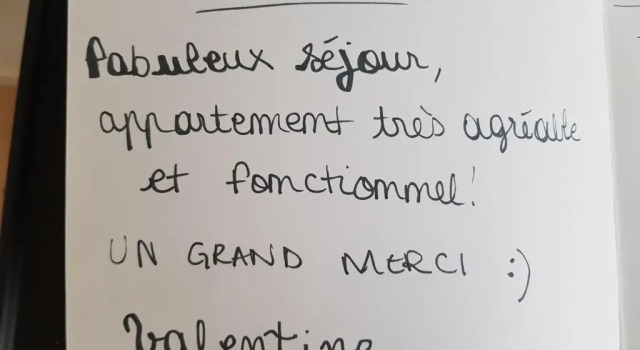 Fabuleux séjour,
appartement très agréable
et fonctionnel!
UN GRAND MERCI :)
Valentine